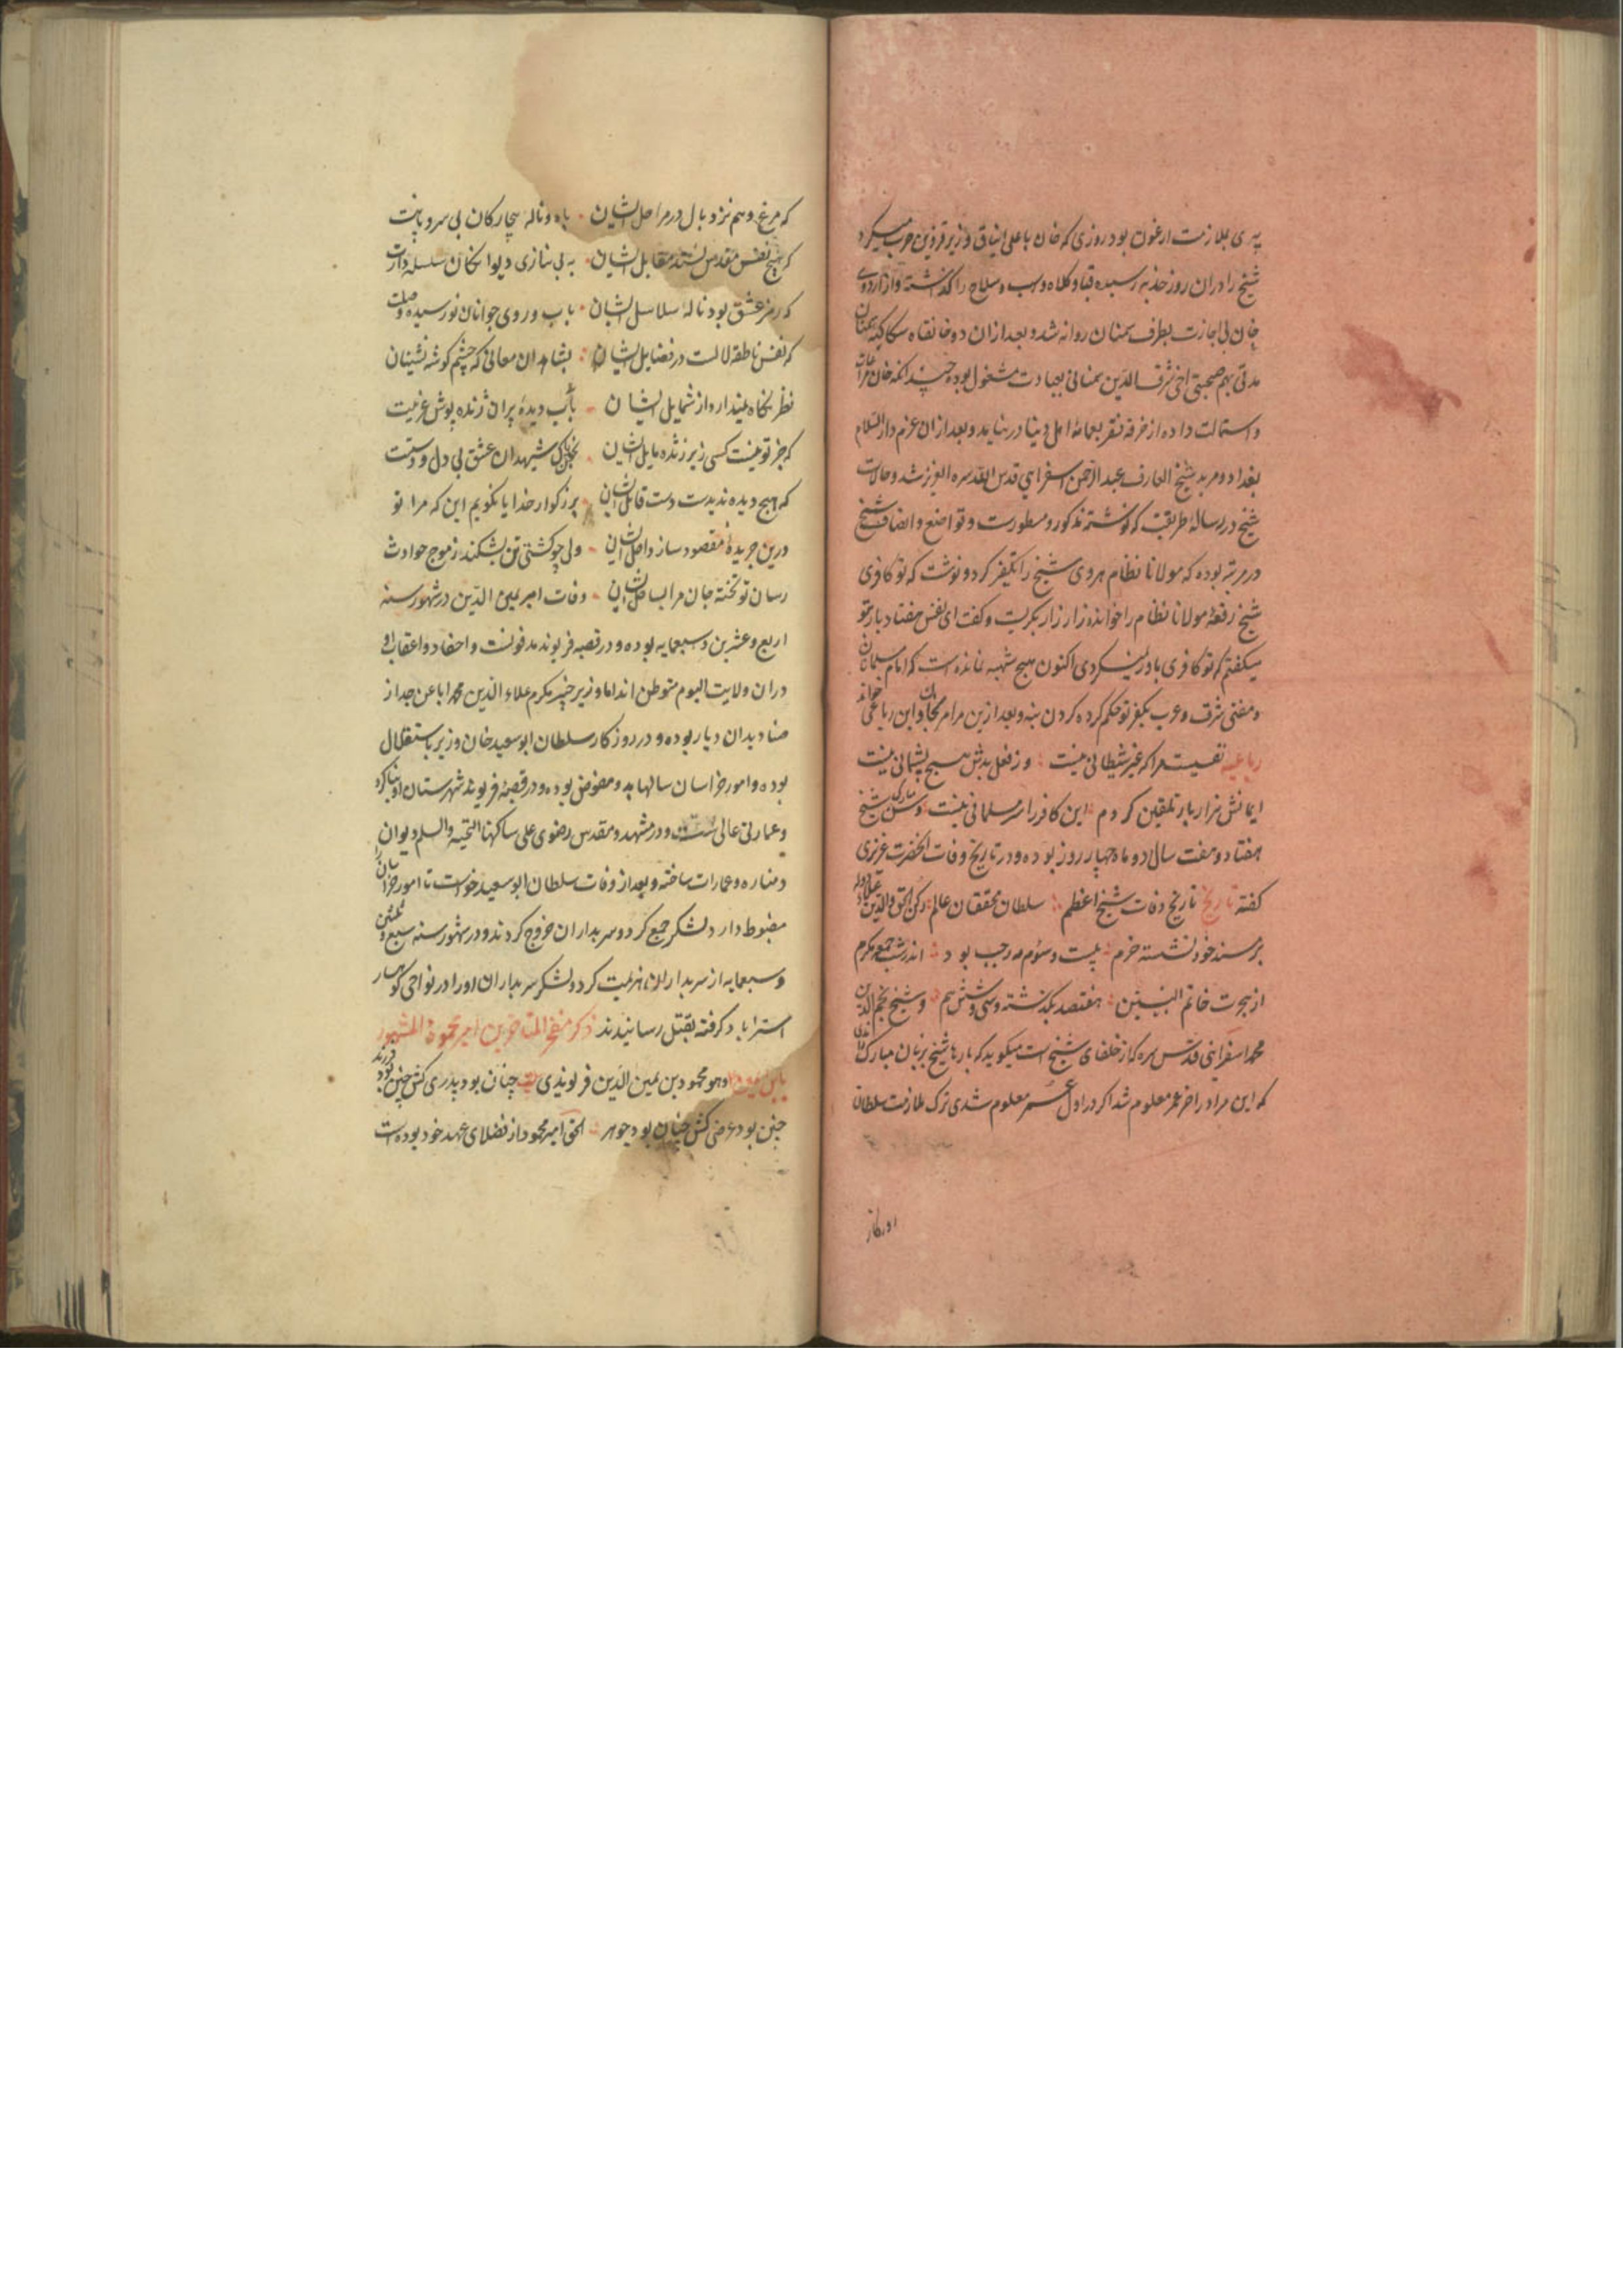 پدری بملازمت ارغون بود روزی که خان با علی ایناق وزیر قزوین حرب میکرد
شیخ را دران روز جذبه رسیده قبا و کلاه و اسب و سلاح را گذاشته و از اردوی
خان بی اجازت بطرف سمنان روانه شد و بعد ازان در خانقاه سکاکیه سمنان
مدتی بهم صحبتی اخی شرف الدین سمنانی بعبادت مشغول بوده چندانکه خان مراعات
و استمالت داده از خرقه فقر بعمامه اهل دینا در نیامد و بعد ازان عزم دار السلام
بغداد و مرید شیخ العارف عبد الرحمن اسفراینی قدس الله سره العزیز شد و حالات
شیخ در رساله طریقت که نوشته مذکور و مسطورست و تواضع و انصاف شیخ
در مرتبه بوده که مولانا نظام هروی شیخ را تکفیر کرد و نوشت که تو کافری
شیخ رقعه مولانا نظام را خوانده زار زار بگریست و کفت ای نفس هفتاد بار بتو
میکفتم که تو کافری باور نمیکردی اکنون هیچ شبهه نمانده است که امام مسلمانان
و مفتی شرق و غرب بکفر تو حکم کرده کردن بنه و بعد ازین مرا مرنجان و این رباعی خواند
رباعیه نفسیست مرا که غیر شیطانی نیست وز فعل بدش هیچ پشیمانی نیست
ایمانش هزار بار تلقین کردم این کافر را سر مسلمانی نیست و سن مبارک شیخ
هفتاد و هفت سال و دو ماه و چهار روز بوده و در تاریخ وفات آنحضرت عزیزی
کفته تاریخ تاریخ وفات شیخ اعظم سلطان محققان عالم رکن الحق و الدین علاء دوله
بر مسند خود نشسته خرم بیست و سوم مه رجب بود اندر شب جمعه مکرم
از هجرت خاتم النبیین هفتصد بکذشته و سی و شش هم و شیخ نجم الدین
محمد اسفراینی قدس سره که از خلفای شیخ است میکوید که بارها شیخ بزبان مبارک
که این مرا در اخر عمر معلوم شد اکر در اول عمر معلوم شدی ترک ملازمت سلطان
که مرغ وهم نزد بال در مراحل ایشان باه و ناله بیچارکان بی سر و پایت
که هیچ نفس مقدس نشد مقابل ایشان به بی نیازی دیوانکان سلسله دارت
که رمز عشق بود ناله سلاسل ایشان باب و روی جوانان نو رسیده وصلت
که نفس ناطقه لالست در فضایل ایشان بشاهدان معانی که چشم کوشه نشینان
نظر نکاه نیندارد از شمایل ایشان باب دیده پیران ژنده پوش غریبت
که جز تو نیست کسی زیر ژنده مایل ایشان بخون پاک شهیدان عشق بی دل و دستت
که هیچ دیده ندیدست دست قاتل ایشان بزرکوار خدایا نکویم این که مرا تو
درین جریده مقصود ساز داخل ایشان ولی چو کشتی تن بشکند ز موج حوادث
رسان تو تخته جان مرا بساحل ایشان وفات امیر یمین الدین در شهور سنه
اربع و عشرین و سبعمایه بوده و در قصبه فریومد مدفونست و احفاد و اعقاب او
دران ولایت الیوم متوطن اند اما وزیر خیر مکرم علاء الدین محمد ابا عن جد از
صنادیدان دیار بوده و در روزکار سلطان ابو سعید خان وزیر باستقلال
بوده و امور خراسان سالها بدو مفوض بوده و در قصبه فریومد شهرستان او بنا کرد
و عمارتی عالی است و در مشهد مقدس رضوی علی ساکنها التحیه و السلم دیوان
و مناره و عمارات ساخته و بعد از وفات سلطان ابو سعید خواست تا امور خراسان را
مضبوط دارد لشکر جمع کرد و سربداران خروج کردند و در شهور سنه سبع و ثلثین
و سبعمایه از سربداران هزیمت کرد و لشکر سربداران او را در نواحی کهسار
استراباد کرفته بقتل رسانیدند ذکر مفخر المتاخرین امیر محمود المشهور
بابن یمین وهو محمود بن یمین الدین فریومدی بیت چنان بود پدری کش چنین بود فرزند
چنین بود عرضی کش چنان بود جوهر الحق امیر محمود از فضلای عهد خود بوده است